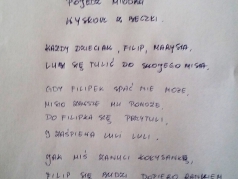 POJEDŹ MIODKU
WYSKOCZ Z BECZKI.
KAŻDY DZIECIAK, FILIP, MARYSIA,
LUBI SIĘ TULIĆ DO SWOJEGO MISIA.
GDY FILIPEK SPAĆ NIE MOŻE,
MISIO ZAWSZE MU POMOŻE,
DO FILIPKA SIĘ PRZYTULI
I ZAŚPIEWA LULI LULI.
GDY MIŚ ZANUCI KOŁYSANKĘ,
FILIP SIĘ BUDZI DOPIERO RANKIEM